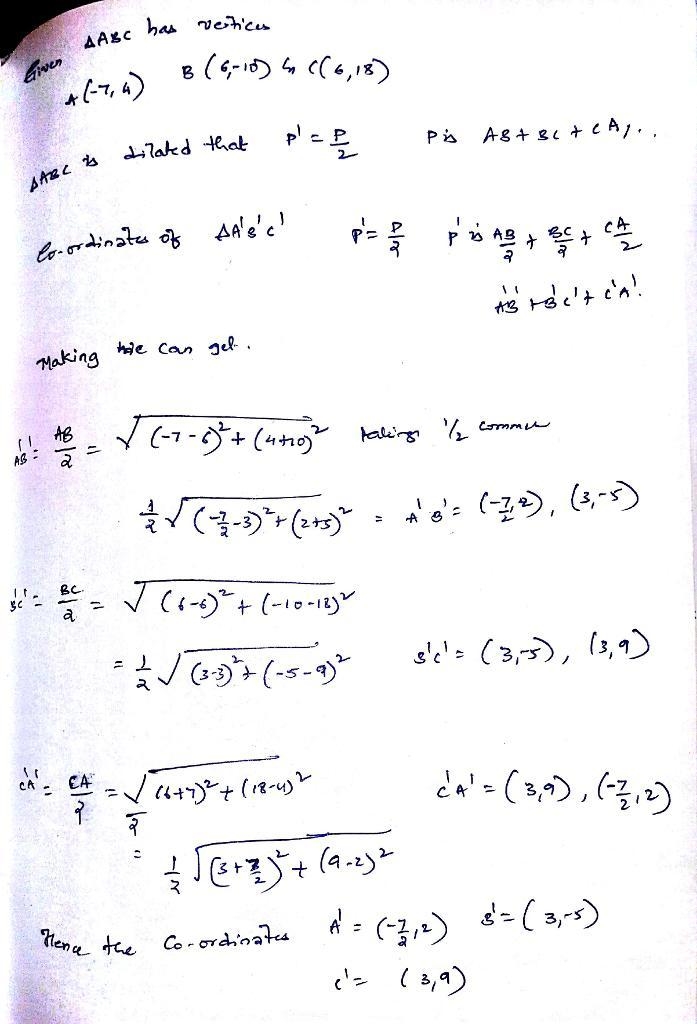 Given ΔABC has vertices
A(-7,4) B(6,-10) & C(6,18)
ΔABC is dilated that P' = P/2 P is AB + BC + CA
Co-ordinates of ΔA'B'C' P' = P/2 P' is AB/2 + BC/2 + CA/2
A'B' + B'C' + C'A'.
Making we can get.
A'B' = AB/2 = √((-7-6)² + (4+10)²) taking 1/2 common
1/2 √((-7/2-3)² + (2+5)²) = A'B' = (-7/2, 2), (3,-5)
B'C' = BC/2 = √((6-6)² + (-10-18)²)
= 1/2 √((3-3)² + (-5-9)²) B'C' = (3,-5), (3,9)
C'A' = CA/2 = √((6+7)² + (18-4)²)/2 C'A' = (3,9), (-7/2, 2)
= 1/2 √((3+7/2)² + (9-2)²)
Hence the Co-ordinates A' = (-7/2, 2) B' = (3,-5)
C' = (3,9)